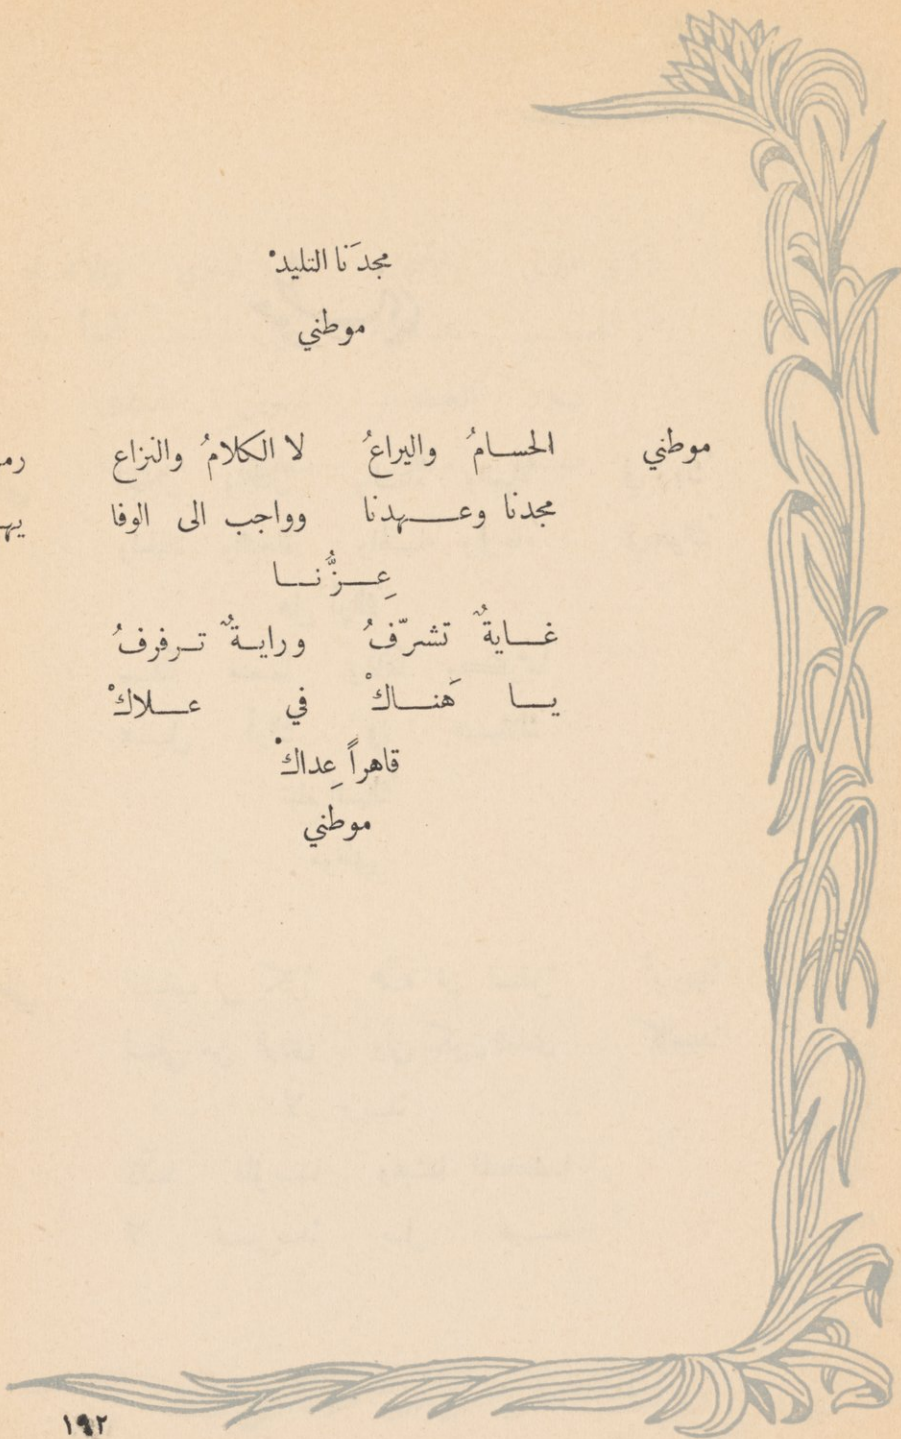 مجدَنا التليدْ
موطني
موطني الحسامُ واليراعُ لا الكلامُ والنزاع رمـ
مجدنا وعـهدنا وواجب الى الوفا يهـ
عِـزُّنـا
غـايةٌ تشرّفُ ورايـةٌ تـرفرفُ
يـا هَنـاكْ في عـلاكْ
قاهراً عِداكْ
موطني
١٩٢